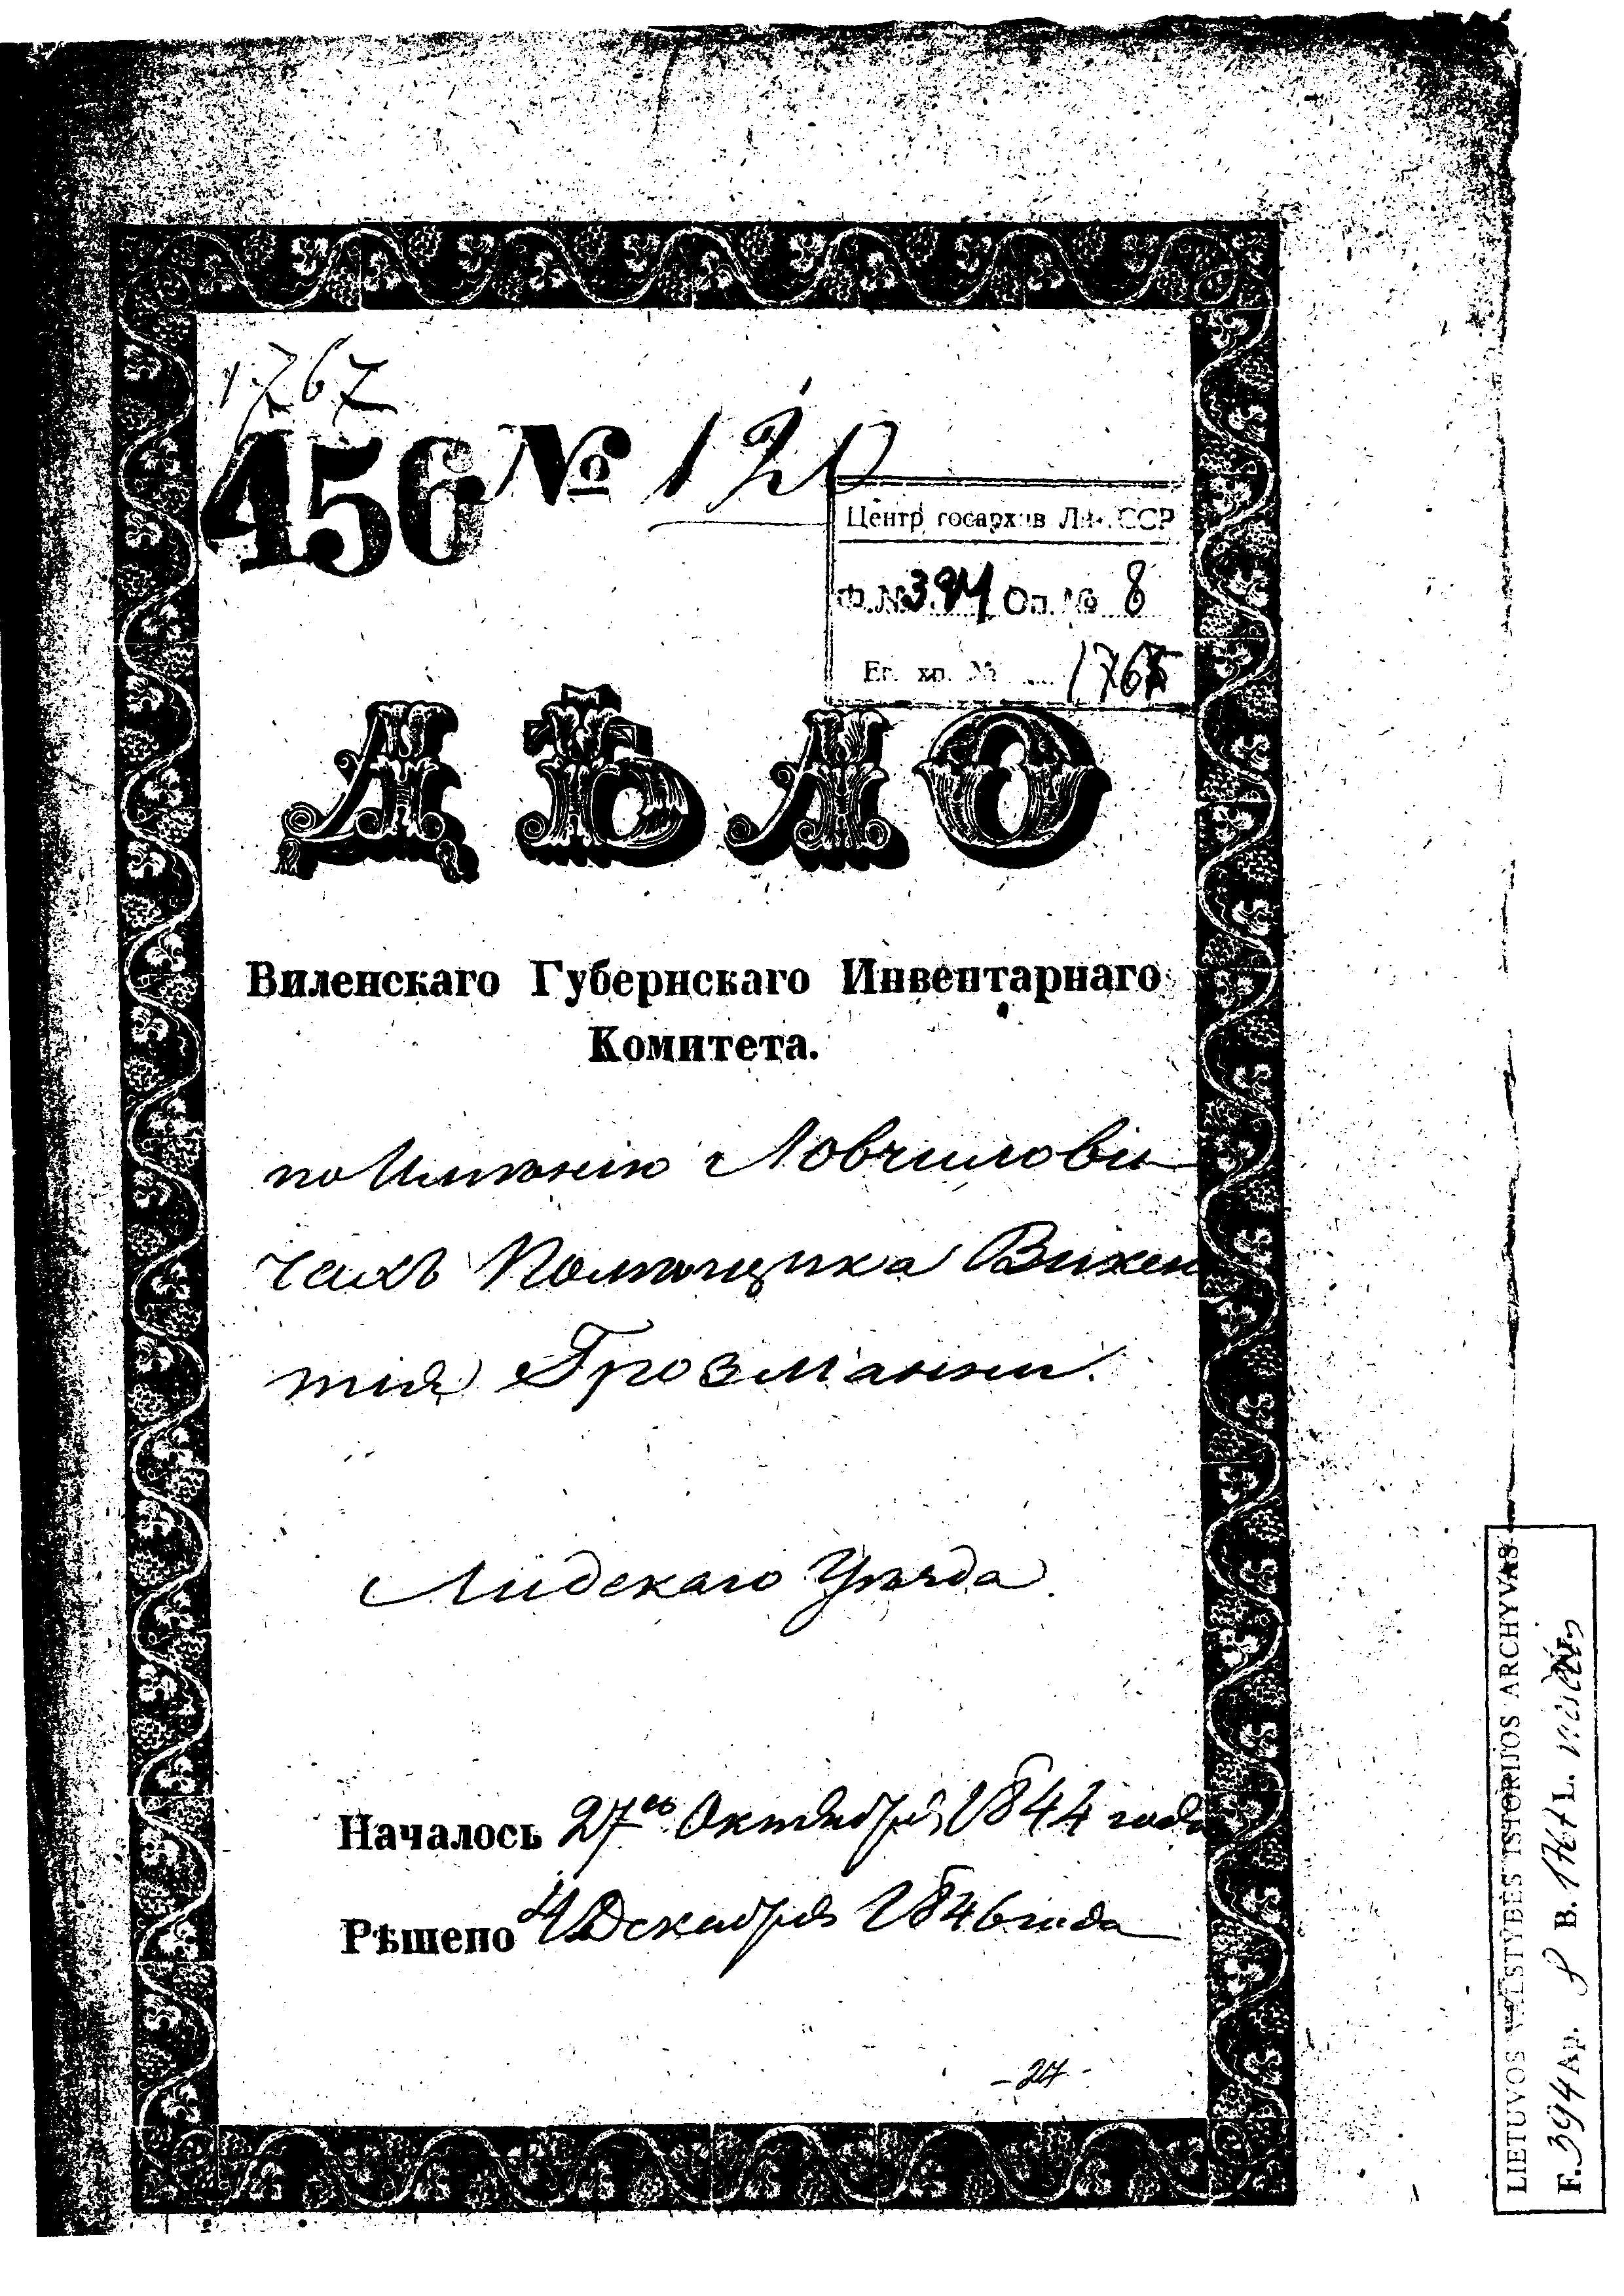 1767
456 № 120
Центр госархив Лит. ССР
Ф. № 394 Оп. № 8
Ед. хр. № 1767
ДѢЛО
Виленскаго Губернскаго Инвентарнаго
Комитета.
по Имѣнію Ловчилови
чахъ Помѣщика Викен
тія Грозмани.
Лидскаго Уѣзда.
Началось 27го Октября 1844 года
Рѣшено 4 Декабря 1846 года
- 27 -
LIETUVOS VALSTYBĖS ISTORIJOS ARCHYVAS
F. 394 Ap. 8 B. 1767 L.